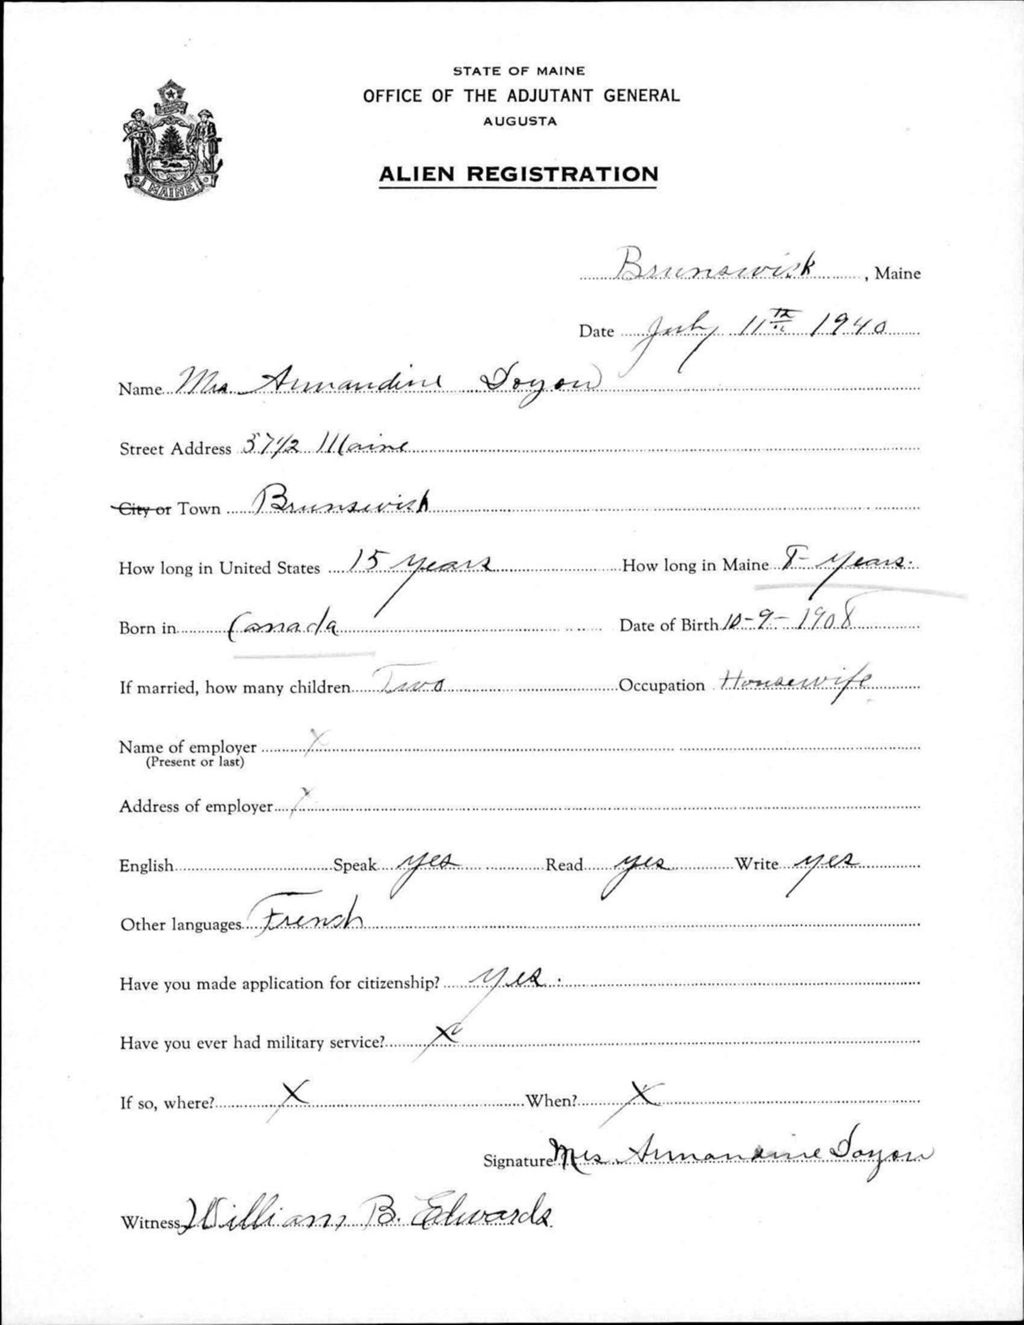 STATE OF MAINE
OFFICE OF THE ADJUTANT GENERAL
AUGUSTA
ALIEN REGISTRATION
MAINE
Brunswick, Maine
Date July 11th 1940
Name Mrs Armandine Doyon
Street Address 57 1/2 Maine
City or Town Brunswick
How long in United States 15 years How long in Maine 8 years.
Born in Canada Date of Birth 10-9-1908
If married, how many children Two Occupation Housewife
Name of employer X
(Present or last)
Address of employer X
English Speak yes Read yes Write yes
Other languages French
Have you made application for citizenship? yes.
Have you ever had military service? X
If so, where? X When? X
Signature Mrs Armandine Doyon
Witness William B. Edwards